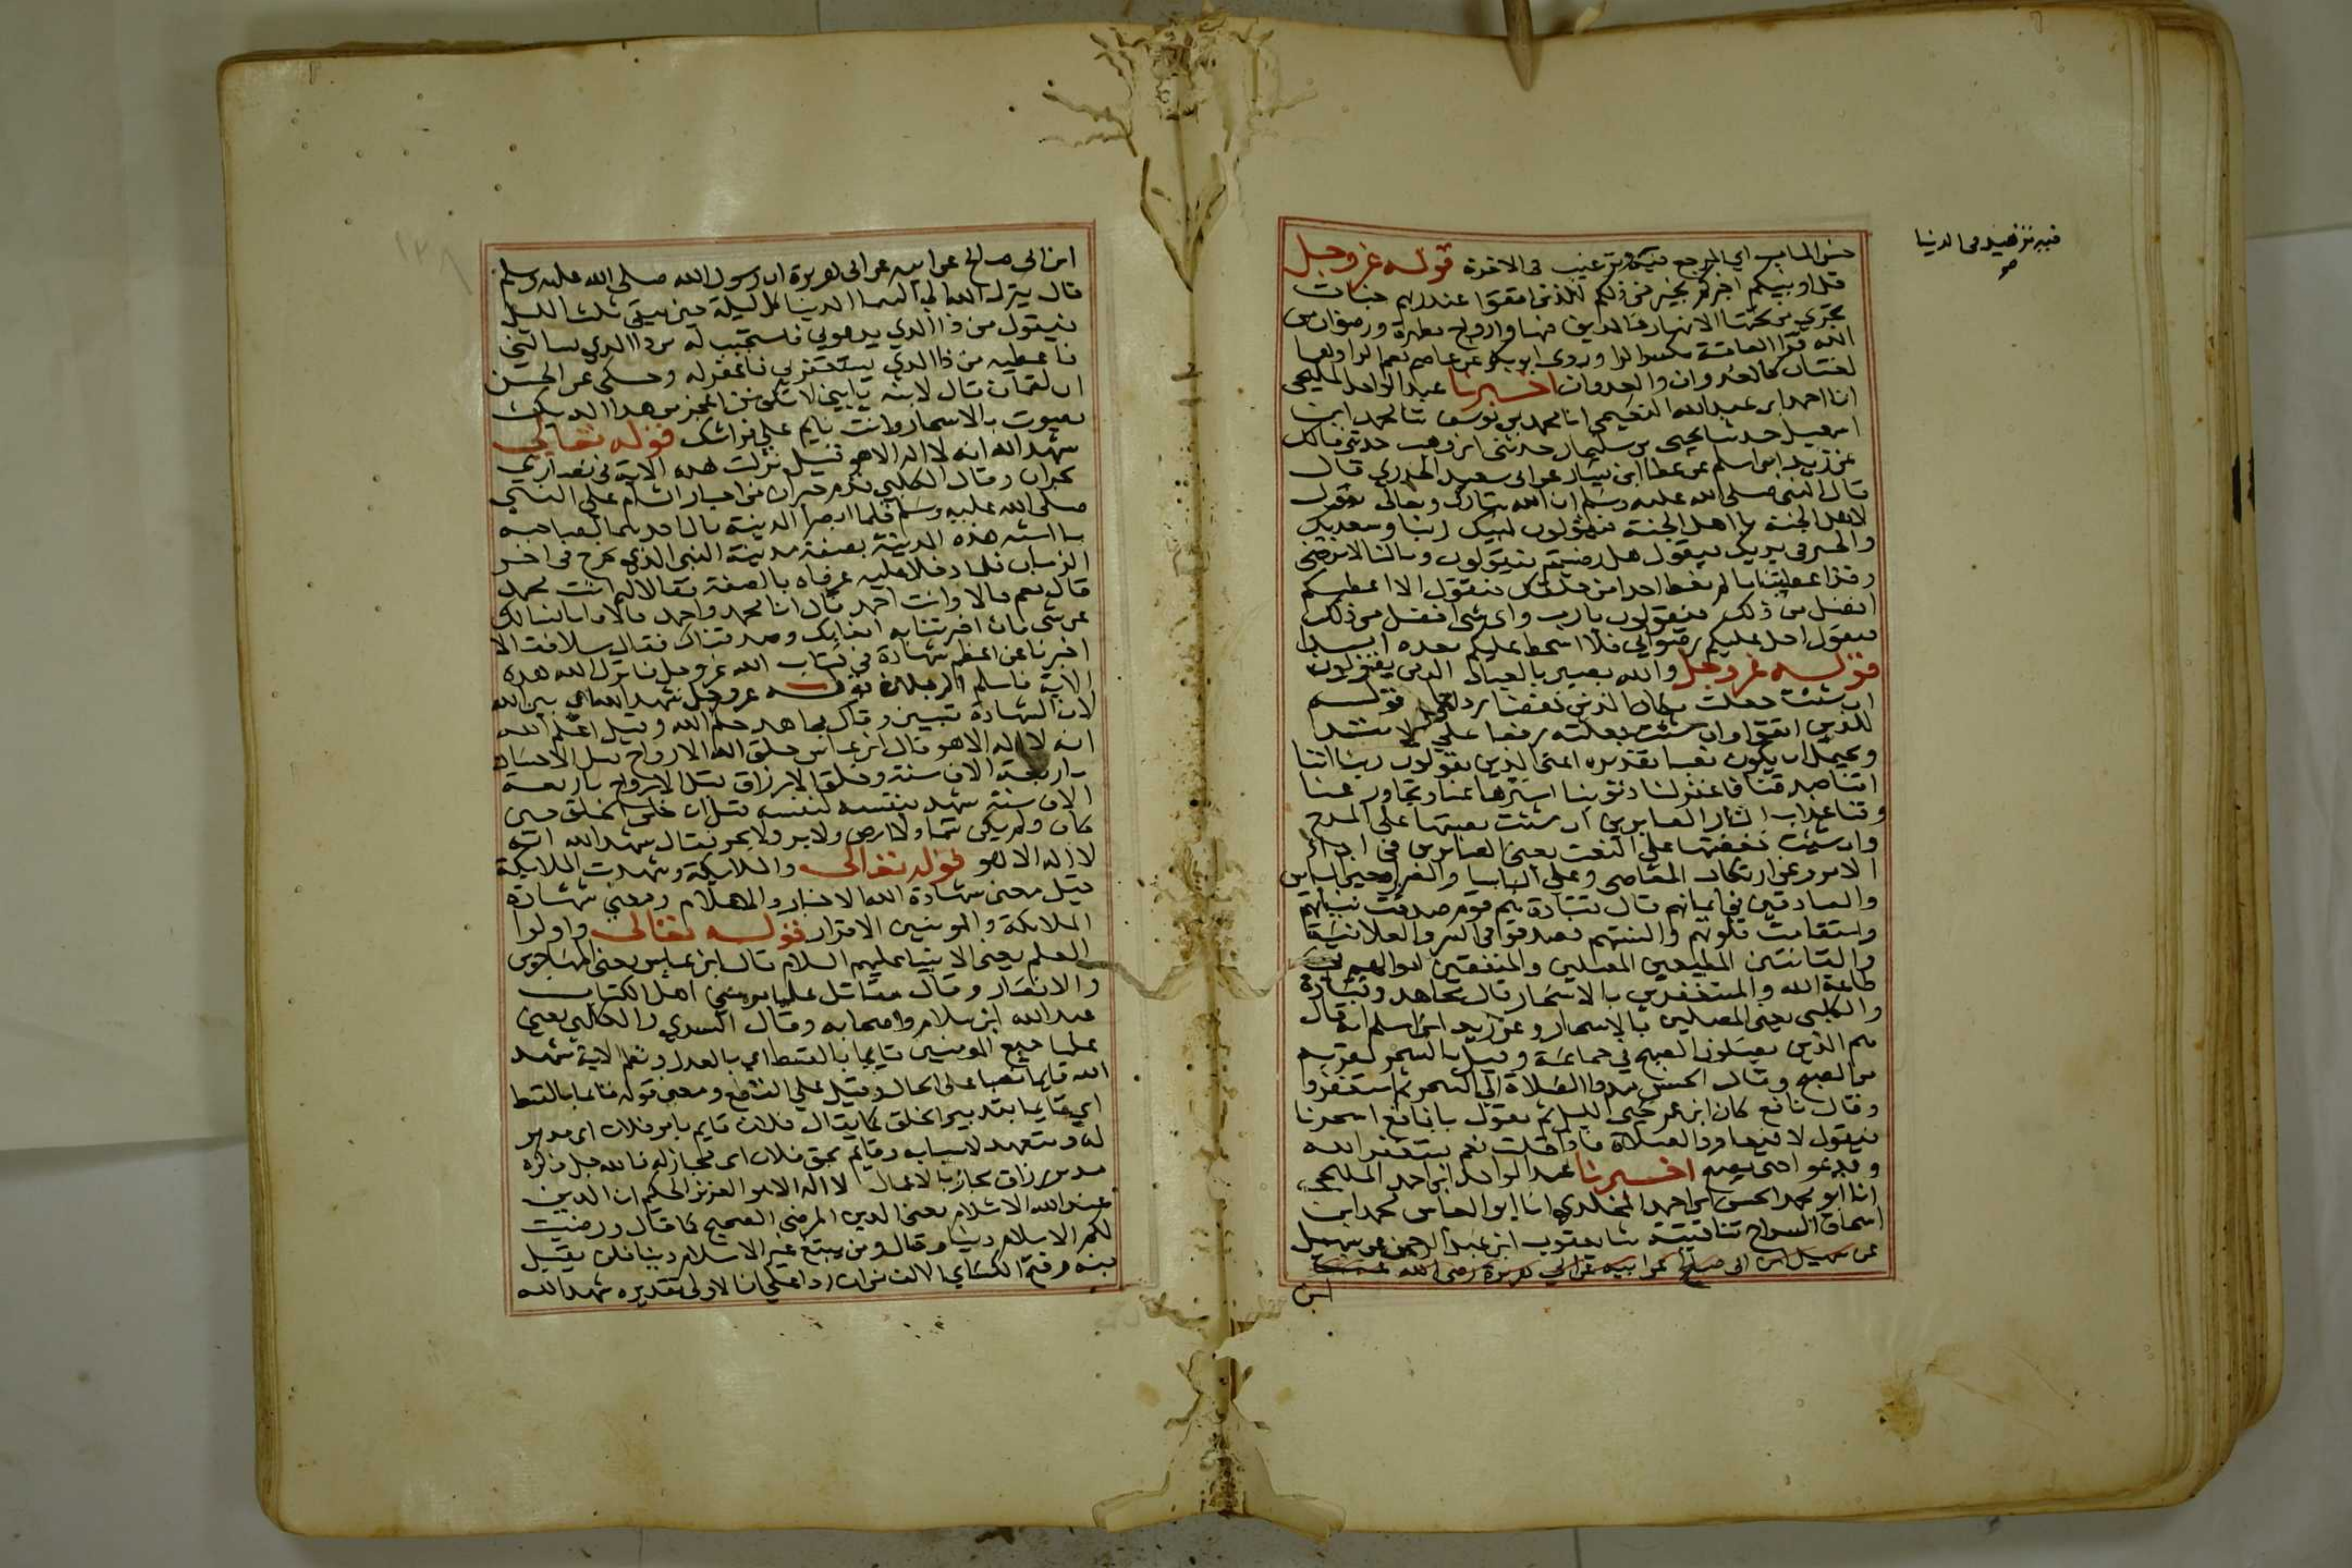 حسن المآب اي المرجع فيه وترغيب في الاخرة قوله عز وجل
فيه تزهيد في الدنيا
صح
قل اونبيكم اخبركم بخير من ذلكم للذين اتقوا عند ربهم جنات
تجري من تحتها الانهار خالدين فيها وازواج مطهرة ورضوان من
الله قرا العامة بكسر الرا وروى ابو بكر عن عاصم بضم الرا وهما
لغتان كالعدوان والعدوان اخبرنا عبد الواحد المليحي
انا احمد ابن عبد الله النعيمي انا محمد بن يوسف ثنا محمد ابن
اسمعيل حدثنا يحيى بن سليمان حدثني ابن وهب حدثني مالك
عن زيد ابن اسلم عن عطا ابن يسار عن ابي سعيد الخدري قال
قال النبي صلى الله عليه وسلم ان الله تبارك وتعالى يقول
لاهل الجنة يا اهل الجنة فيقولون لبيك ربنا وسعديك
والخير في يديك فيقول هل رضيتم فيقولون وما لنا لا نرضى
وقد اعطيتنا ما لم تعط احدا من خلقك فيقول الا اعطيكم
افضل من ذلك فيقولون يا رب واي شي افضل من ذلك
فيقول احل عليكم رضواني فلا اسخط عليكم بعده ابدا
قوله عز وجل والله بصير بالعباد الذين يقولون
ان شئت جعلت محل الذين خفضا ردا على قوله
للذين اتقوا وان شئت جعلته رفعا على الابتدا
ويحتمل ان يكون نصبا تقديره اعني الذين يقولون ربنا اننا
امنا صدقنا فاغفر لنا ذنوبنا استرها علينا وتجاوز عنا
وقنا عذاب النار الصابرين ان شئت نصبتها على المدح
وان شئت خفضتها على النعت يعني الصابرين في ادا
الامر وعن ارتكاب المعاصي وعلى الباسا والضرا وحين الباس
والصادقين في ايمانهم قال قتادة هم قوم صدقت نياتهم
واستقامت قلوبهم والسنتهم فصدقوا في السر والعلانية
والقانتين المطيعين المصلين والمنفقين اموالهم في
طاعة الله والمستغفرين بالاسحار قال مجاهد وقتادة
والكلبي يعني المصلين بالاسحار وعن زيد ابن اسلم انه قال
هم الذين يصلون الصبح في جماعة وقيل بالسحر لقربه
من الصبح وقال الحسن مدوا الصلاة الى السحر ثم استغفروا
وقال نافع كان ابن عمر يحيي الليل ثم يقول يا نافع اسحرنا
فيقول لا فيعاود الصلاة فاذا قلت نعم يستغفر الله
ويدعو حتى يصبح اخبرنا عبد الواحد ابن احمد المليحي
انا ابو محمد الحسن ابن احمد المخلدي انا ابو العباس محمد ابن
اسحاق السراج ثنا قتيبة ثنا يعقوب ابن عبد الرحمن عن سهيل
عن سهيل ابن ابي صالح عن ابيه عن ابي هريرة رضي الله عنه
ابن
١٣٨
ابن ابي صالح عن ابيه عن ابي هريرة ان رسول الله صلى الله عليه وسلم
قال ينزل الله الى السما الدنيا كل ليلة حين يبقى ثلث الليل
فيقول من ذا الذي يدعوني فاستجيب له من ذا الذي يسالني
فاعطيه من ذا الذي يستغفرني فاغفر له وحكى عن الحسن
ان لقمان قال لابنه يا بني لا تكن اعجز من هذا الديك
يصوت بالاسحار وانت نايم على فراشك قوله تعالى
شهد الله انه لا اله الا هو قيل نزلت هذه الاية في نصارى
نجران وقال الكلبي قدم حبران من احبار الشام على النبي
صلى الله عليه وسلم فلما ابصرا المدينة قال احدهما لصاحبه
ما اشبه هذه المدينة بصفة مدينة النبي الذي يخرج في اخر
الزمان فلما دخلا عليه عرفاه بالصفة فقالا له انت محمد
قال نعم قالا وانت احمد قال انا محمد واحمد قالا فانا نسالك
عن شي فان اخبرتنا به امنا بك وصدقناك فقال سلا فقالا
اخبرنا عن اعظم شهادة في كتاب الله عز وجل فانزل الله هذه
الاية فاسلم الرجلان قوله عز وجل شهد الله اي بين الله
لان الشهادة تبيين وقال مجاهد حكم الله وقيل اعلم الله
انه لا اله الا هو قال ابن عباس خلق الله الارواح قبل الاجساد
باربعة الاف سنة وخلق الارزاق قبل الارواح باربعة
الاف سنة شهد بنفسه لنفسه قبل ان خلق الخلق حين
كان ولم يكن سما ولا ارض ولا بر ولا بحر فقال شهد الله انه
لا اله الا هو قوله تعالى والملايكة وشهدت الملايكة
قيل معنى شهادة الله الاخبار والاعلام ومعنى شهادة
الملايكة والمومنين الاقرار قوله تعالى واولوا
العلم يعني الانبيا عليهم السلام قال ابن عباس يعني المهاجرين
والانصار وقال مقاتل علما مومني اهل الكتاب
عبد الله ابن سلام واصحابه وقال السدي والكلبي يعني
علما جميع المومنين قايما بالقسط اي بالعدل ونظم الاية شهد
الله قايما نصبا على الحال وقيل على القطع ومعنى قوله قايما بالقسط
اي قايما بتدبير الخلق كما يقال فلان قايم بامر فلان اي مدبر
له ومتعهد لاسبابه وقايم بحق فلان اي مجاز له فالله جل ذكره
مدبر رزاق مجاز بالاعمال لا اله الا هو العزيز الحكيم ان الدين
عند الله الاسلام يعني الدين المرضي الصحيح كما قال ورضيت
لكم الاسلام دينا وقال ومن يبتغ غير الاسلام دينا فلن يقبل
منه وفتح الكساي الالف من ان ردا على ان الاولى تقديره شهد الله